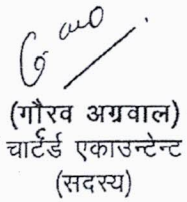 (गौरव अग्रवाल)
चार्टर्ड एकाउन्टेन्ट
(सदस्य)